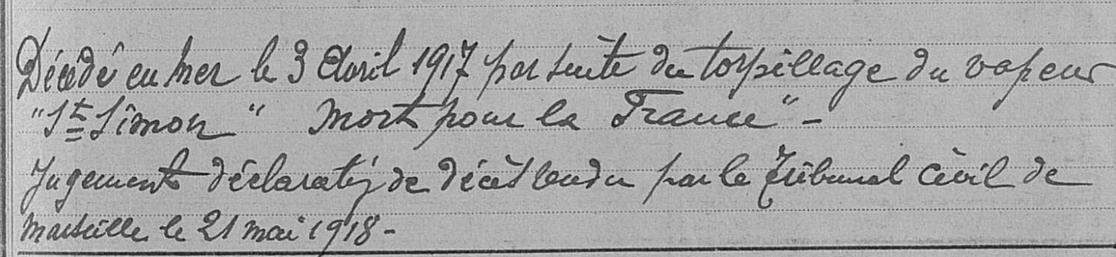 Décédé en mer le 3 Avril 1917 par suite du torpillage du vapeur
"St Simon" Mort pour la France" -
Jugement déclaratif de décès rendu par le Tribunal Civil de
Marseille le 21 mai 1918 -